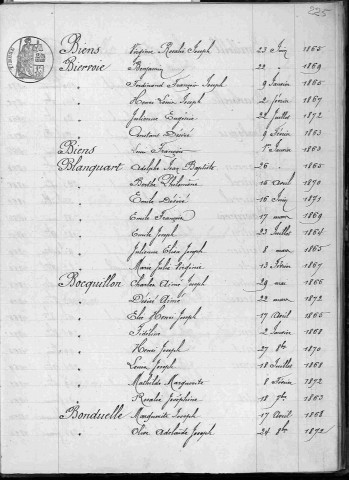 225
Biens Virginie Rosalie Joseph 23 Juin 1865
Bierroie Benjamin 22 " 1869
" Ferdinand François Joseph 9 Janvier 1865
" Henri Louis Joseph 2 février 1867
" Julienne Eugénie 22 Juillet 1872
" Constant Désiré 9 Février 1863
Biens Louis François 5 Janvier 1863
Blanquart Adolphe Jean Baptiste 26 " 1865
" Berthe Philomène 16 Avril 1870
" Emile Désiré 16 Juin 1871
" Emile François 17 mars 1869
" Emile Joseph 23 Juillet 1864
" Julienne Elisa Joseph 8 mars 1865
" Marie Julie Virginie 13 Février 1867
Bocquillon Charles Aimé Joseph 29 mai 1866
" Désiré Aimé 22 mars 1872
" Elie Henri Joseph 17 Avril 1865
" Fidéline 2 Janvier 1868
" Henri Joseph 27 8bre 1870
" Louis Joseph 18 Juillet 1868
" Mathilde Marguerite 8 Février 1872
" Rosalie Joséphine 18 7bre 1863
Bonduelle Marguerite Joseph 17 Avril 1868
" Olive Adélaïde Joseph 24 8bre 1872